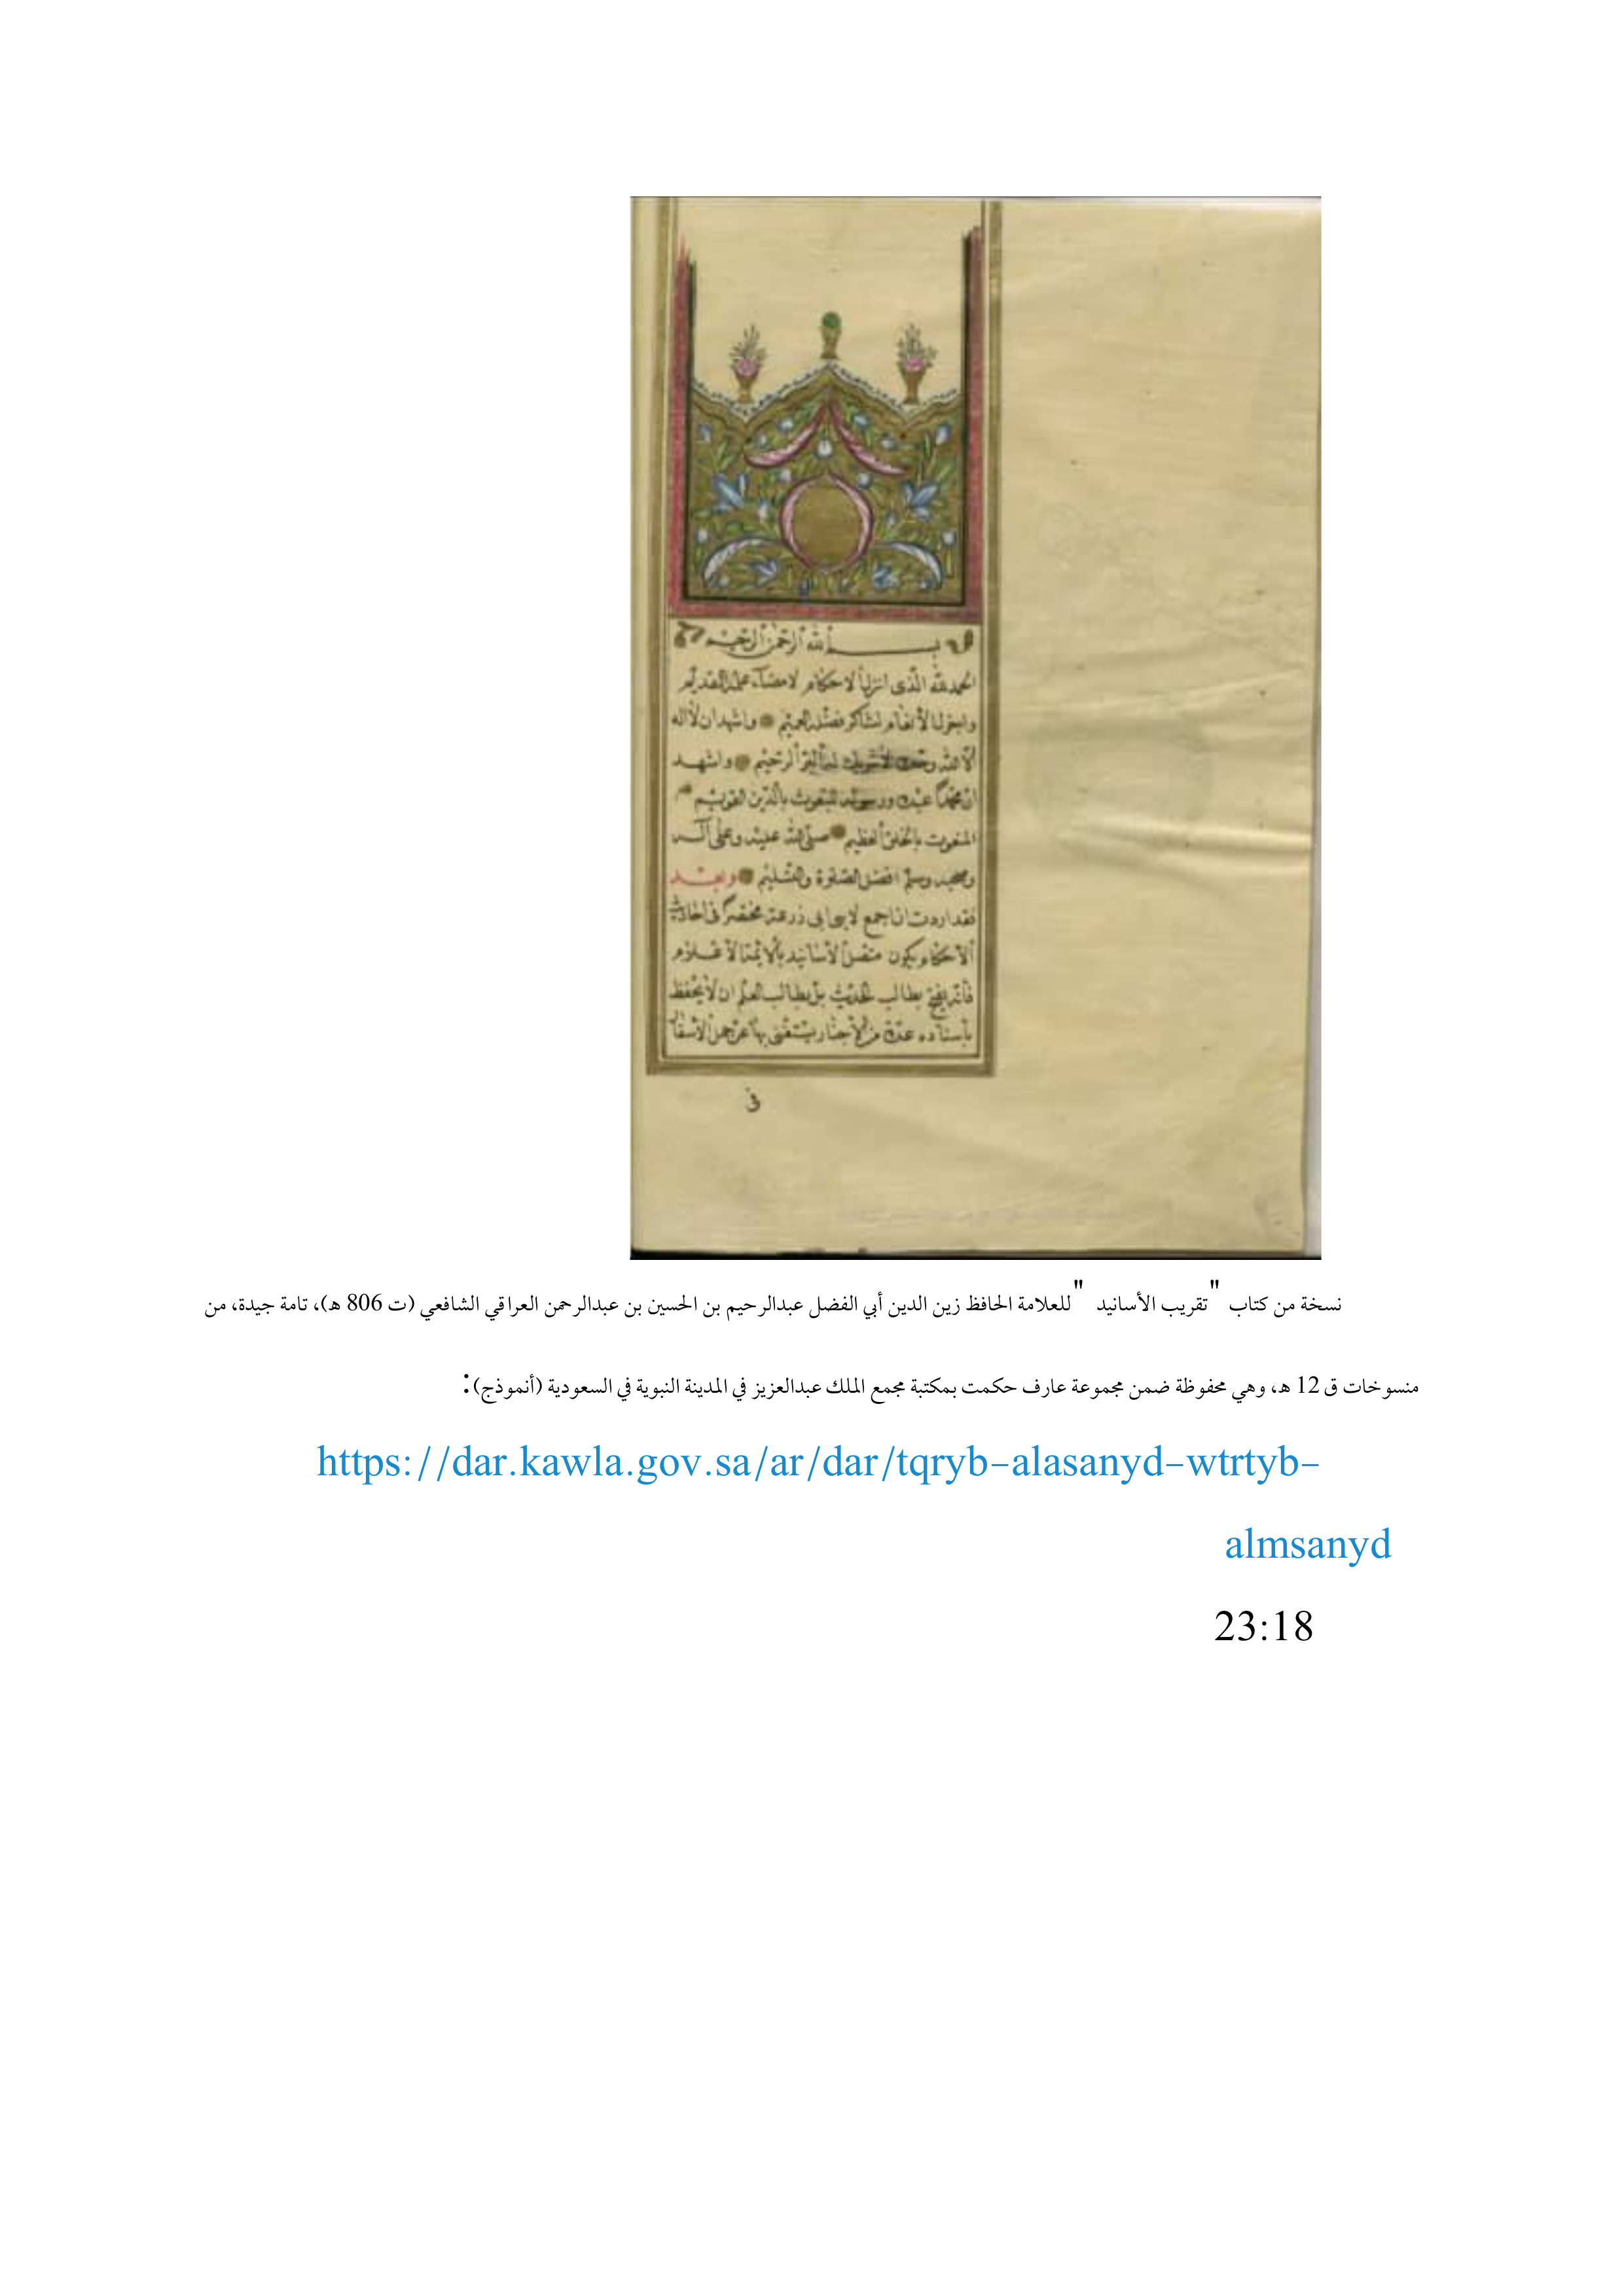 بسم الله الرحمن الرحيم
الحمد لله الذى انزل الاحكام لامضاء علمه القديم
واجزل الانعام لشاكر فضله العميم واشهد ان لا اله
الا الله وحده لا شريك له البر الرحيم واشهد
ان محمدا عبده ورسوله المبعوث بالدين القويم
المنعوت بالخلق العظيم صلى الله عليه وعلى آله
وصحبه وسلم افضل الصلوة والتسليم وبعد
فقد اردت ان اجمع لابنى ابى زرعة مختصرا فى احاديث
الاحكام يكون متصل الاسانيد بالائمة الاعلام
فانه يقبح بطالب الحديث بل بطالب العلم ان لا يحفظ
باسناده عدة من الاخبار يستغنى بها عن حمل الاسفار
فى
نسخة من كتاب "تقريب الأسانيد" للعلامة الحافظ زين الدين أبي الفضل عبدالرحيم بن الحسين بن عبدالرحمن العراقي الشافعي (ت 806 هـ)، تامة جيدة، من
منسوخات ق 12 هـ، وهي محفوظة ضمن مجموعة عارف حكمت بمكتبة مجمع الملك عبدالعزيز في المدينة النبوية في السعودية (أنموذج):
https://dar.kawla.gov.sa/ar/dar/tqryb-alasanyd-wtrtyb-
almsanyd
23:18